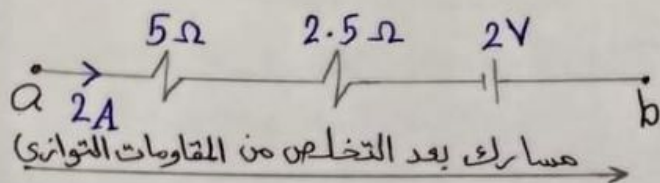 5Ω 2.5Ω 2V
a 2A b
مسارك بعد التخلص من المقاومات التوازي